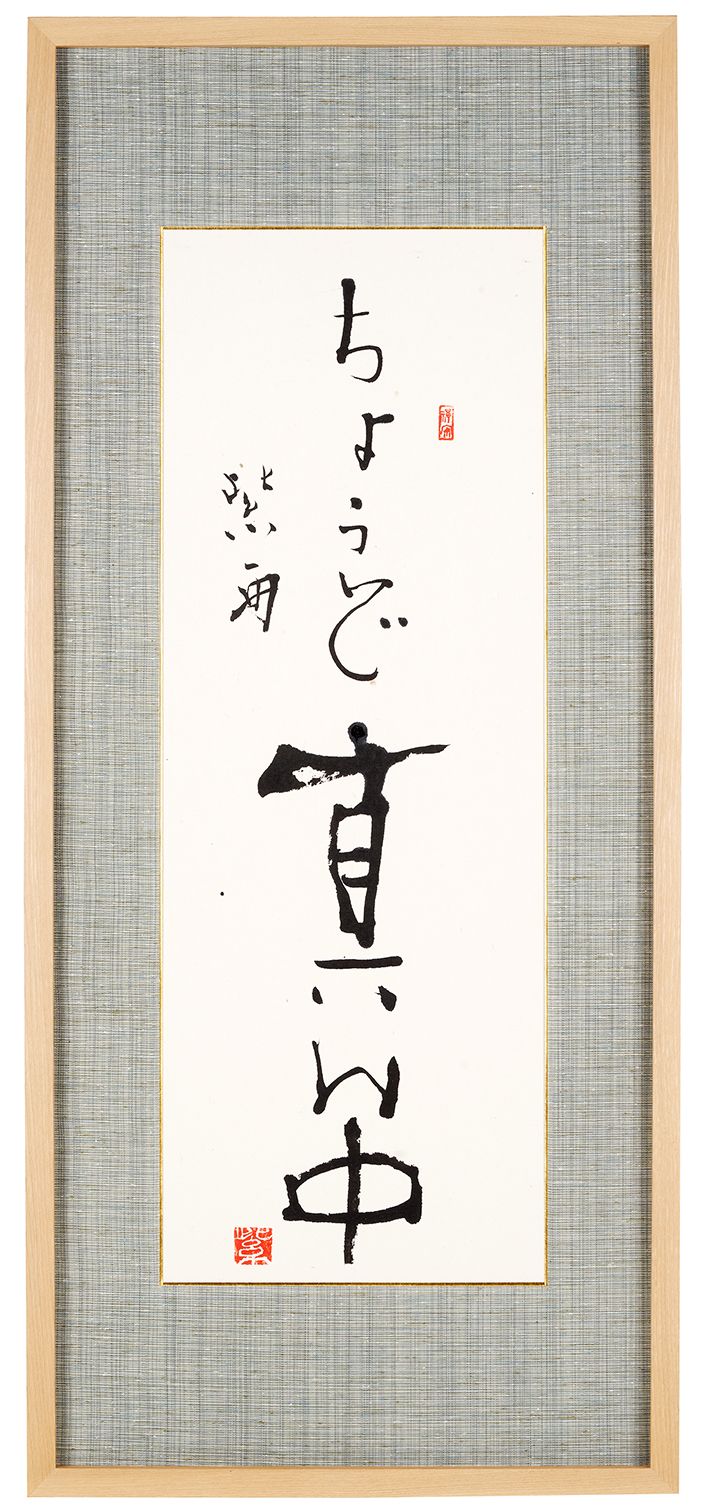 ちょうど真ん中
紫舟
紫